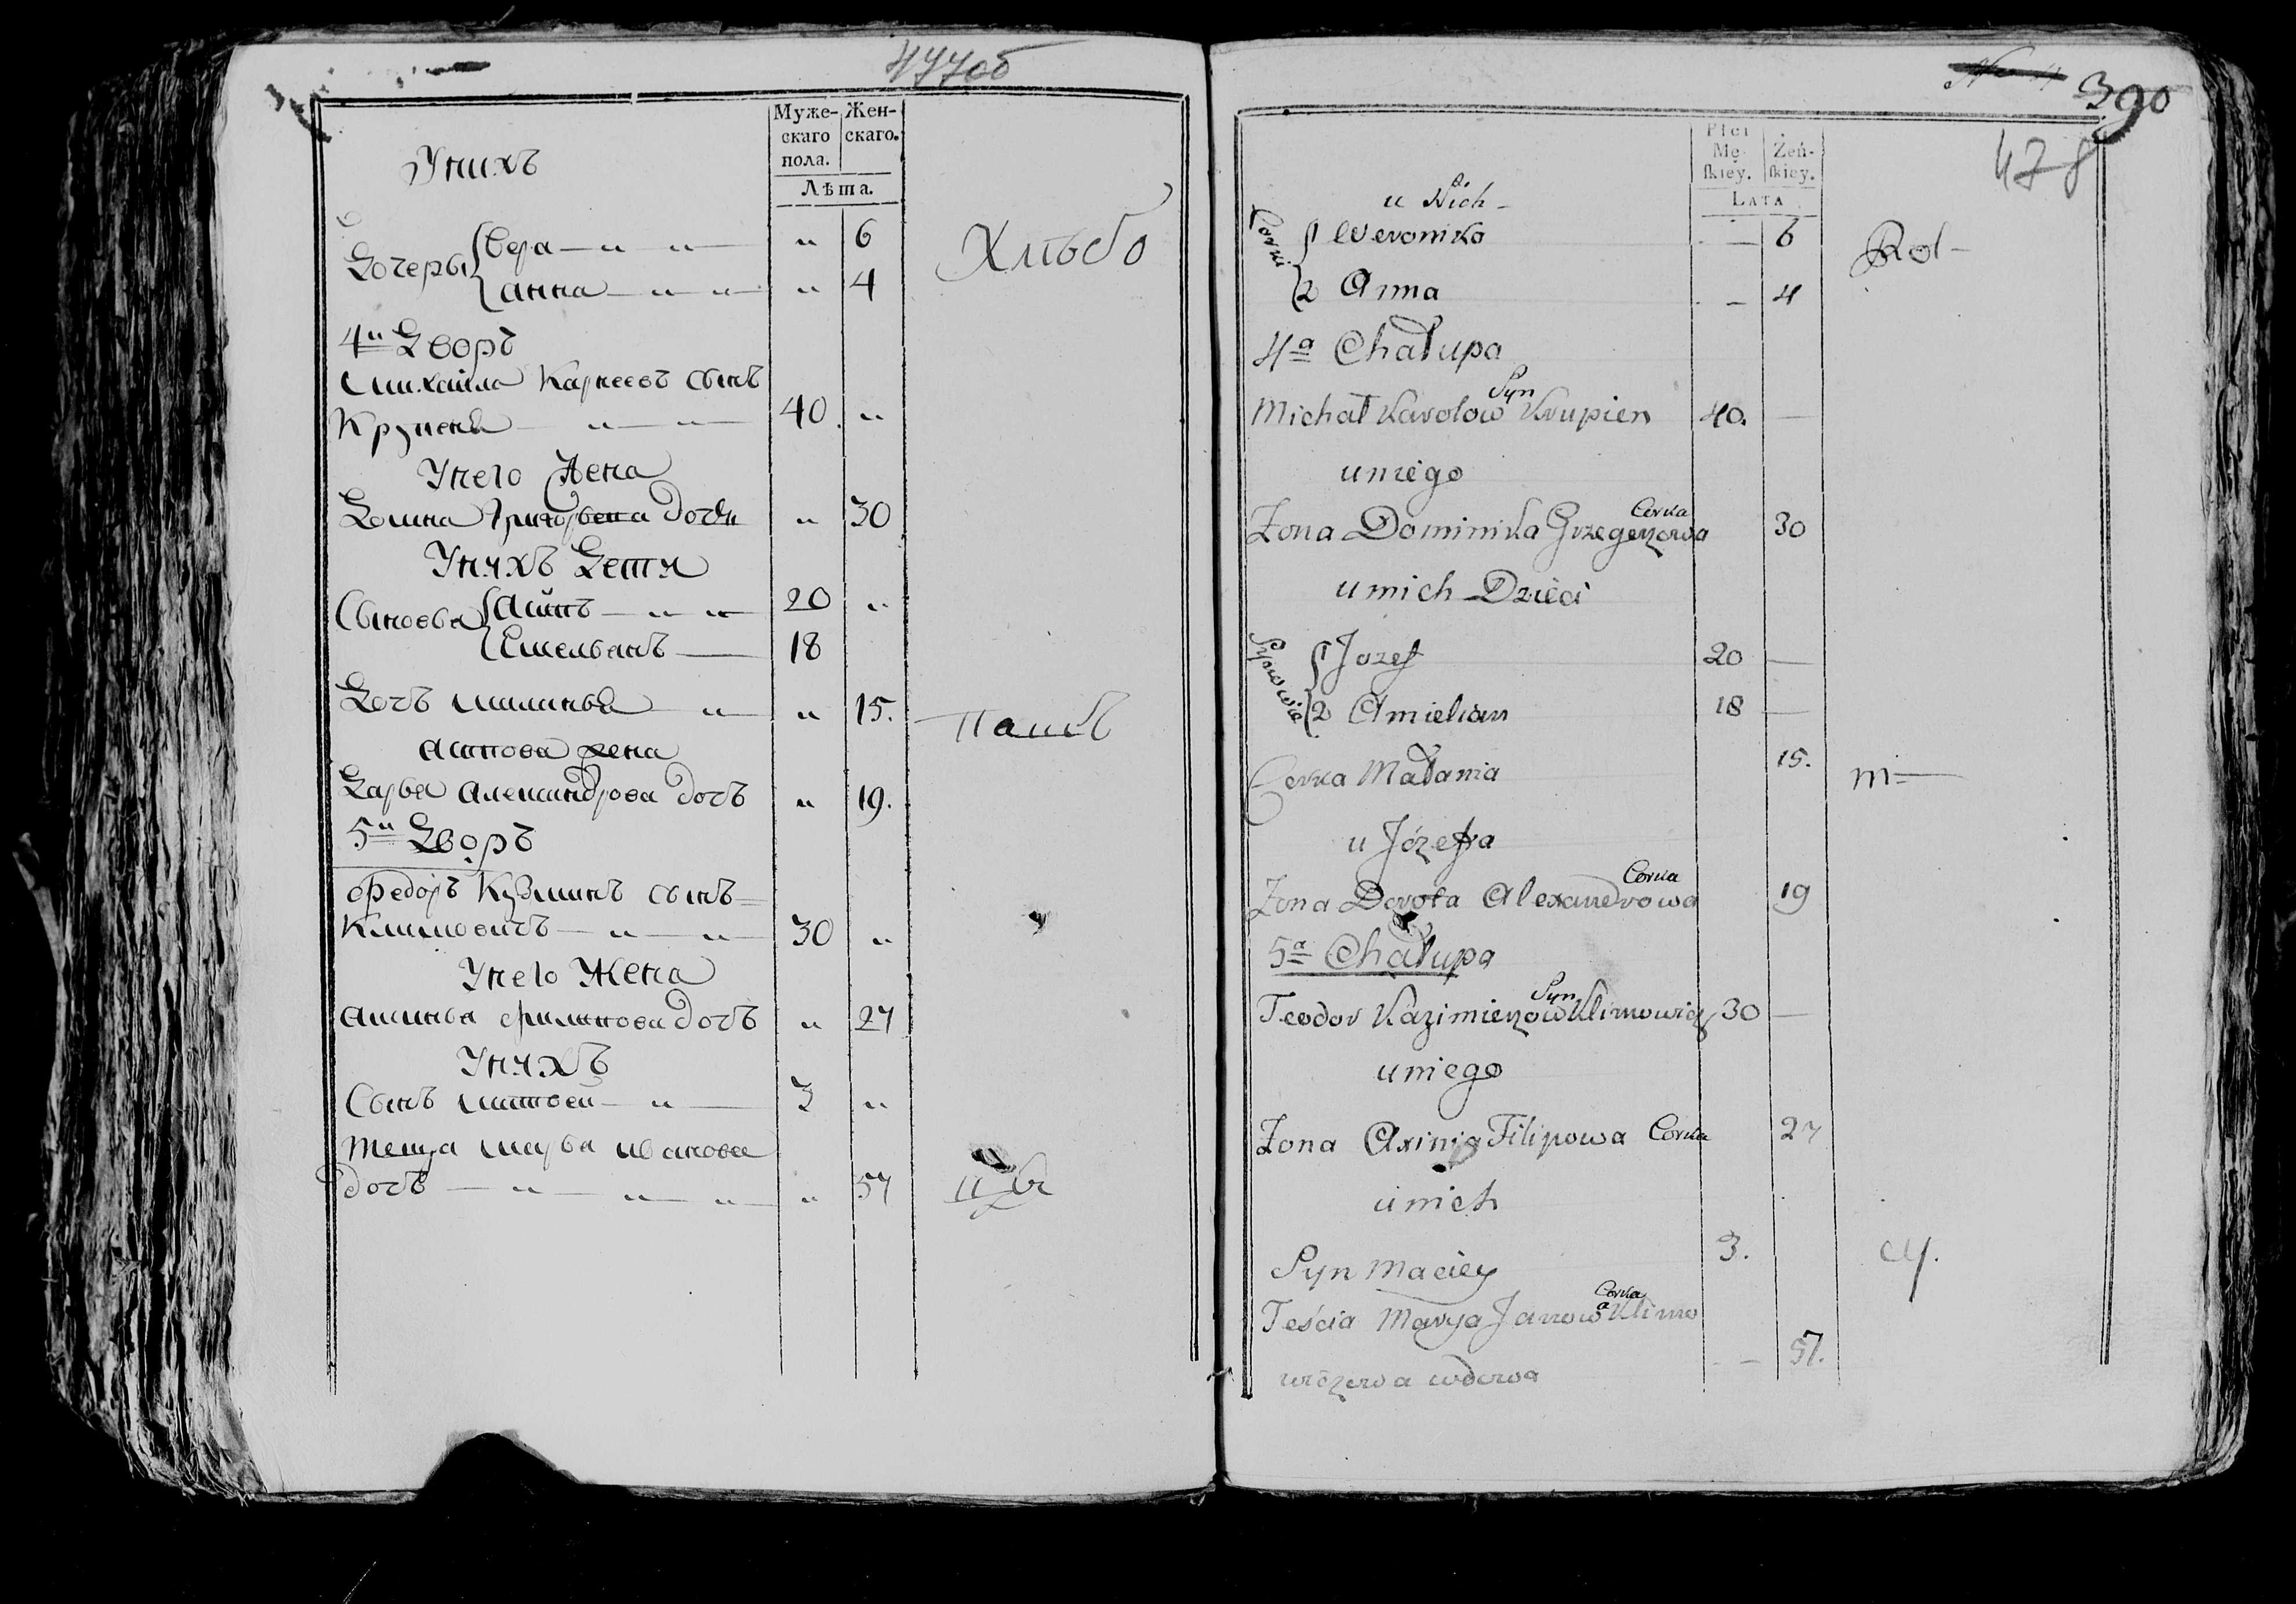 477об
Муже- Жен-
скаго скаго.
пола.
Лѣта.
У нихъ
Дочеры Вера — „ „ — „ 6
Анна — „ „ — „ 4
Хлѣбо
4й Дворъ
Михайла Карнеевъ сынъ
Крупеня — „ — 40. „
У него Жена
Домна Григорьева дочь „ 30
У нихъ Дети
Сыновья Асипъ — „ „ — 20 „
Емельянъ — 18
Дочь Миланья „ — „ 15.
паш
Асипова жена
Дарья Александрова дочь „ 19.
5й Дворъ
Федоръ Кузминъ сынъ
Климовичъ — „ — „ — 30 „
У него Жена
Аксинья Филипова дочь „ 27
У нихъ
Сынъ Матвей — „ — 3 „
теща Марья Иванова
дочь — „ — „ — „ — „ 57
390
478
Płci
Mę- Żeń-
skiey. skiey.
LATA
u Nich
Corki 1 Weronika — 6
2 Anna — 4
Rol-
4a Chałupa
Michał Karolow Syn Krupien 40. —
u niego
Żona Dominika Grzegerzowa Corka 30
u nich Dzieci
Synowie 1 Jozef 20 —
2 Amielian 18 —
Corka Małania 15.
ni-
u Józefa
Żona Dorota Alexandrowa Corka 19
5a Chałupa
Teodor Kazimierzow Syn Klimowicz 30 —
u niego
Żona Axinia Filipowa Corka 27
u nich
Syn Maciey 3.
cy.
Teścia Marya Janowa Corka Klimo
wiczowa wdowa — 57.